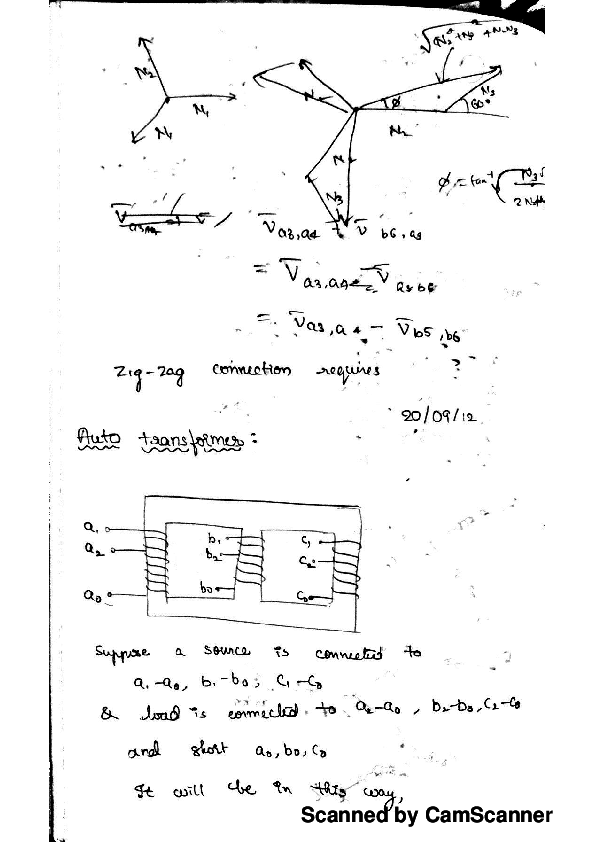 N₂
N₁
N₁
N
φ
N₃
60°
N₂
N
N₃
φ = tan⁻¹
V̄a3,a4 + V̄b6,a3
= V̄a3,a4
= V̄a3,a4 - V̄b5,b6
Zig-zag connection requires ?
20/09/12
Auto transformer:
a₁ b₁ c₁
a₂ b₂ c₂
a₀ b₀ c₀
Suppose a source is connected to
a₁-a₀, b₁-b₀, c₁-c₀
& load is connected to a₂-a₀, b₂-b₀, c₂-c₀
and short a₀, b₀, c₀
It will be in this way,
Scanned by CamScanner